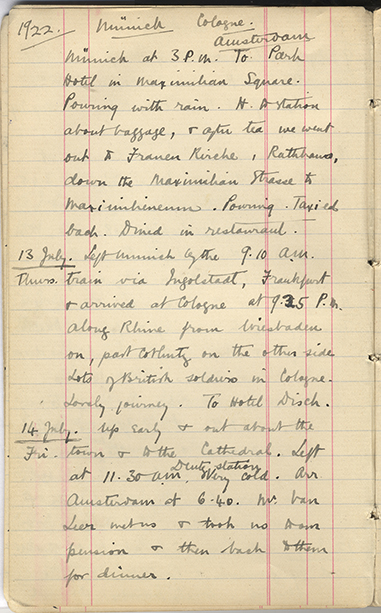 1922. Münich Cologne.
Amsterdam
Münich at 3 P.M. To Park
Hotel in Maximilian Square.
Pouring with rain. H. to station
about baggage, & after tea we went
out to Frauen Kirche, Rathhaus,
down the Maximilian Strasse to
Maximilineum. Pouring. Taxied
back. Dined in restaurant.
13 July. Left Munich by the 9.10 a.m.
Thurs. train via Ingolstadt, Frankfurt
& arrived at Cologne at 9.35 P.M.
Along Rhine from Wiesbaden
on, past Coblentz on the other side
Lots of British soldiers in Cologne.
Lovely journey. To Hotel Disch.
14 July. Up early & out about the
Fri. town & to the Cathedral. Left
Deutz station
at 11.30 am, Very cold. Arr
Amsterdam at 6.40. Mr. van
Leer met us & took us to our
pension & then back to them
for dinner.